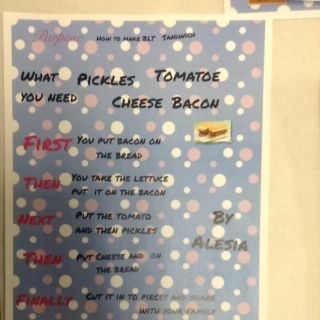 Purpose How to make BLT Sandwich
What Pickles Tomatoe
you need Cheese Bacon
First You put bacon on
the bread
Then You take the lettuce
put it on the bacon
Next Put the tomato
and then pickles
By
Alesia
Then Put cheese and on
the bread
Finally Cut it in to pieces and share
with your family